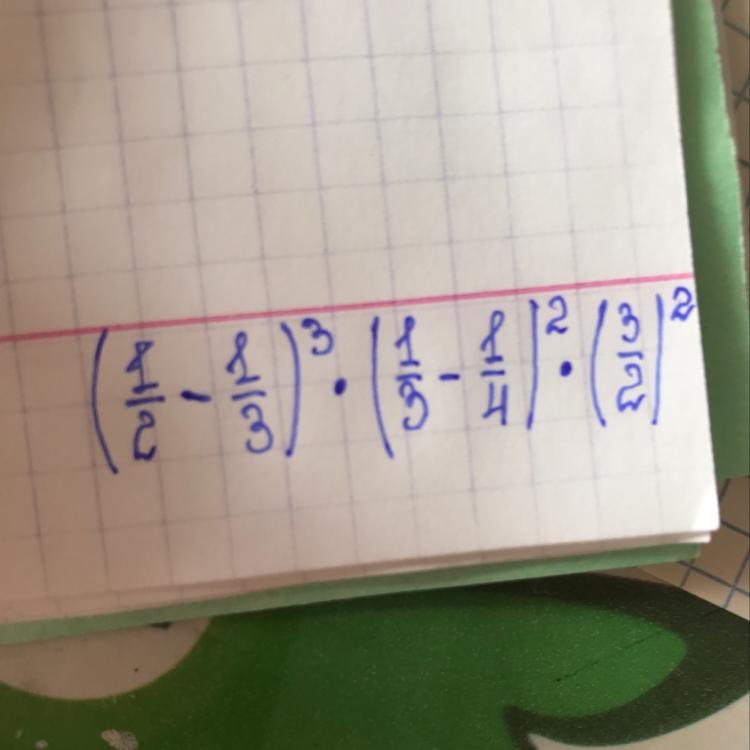 (1/2 - 1/3)^3 · (1/3 - 1/4)^2 · (3/2)^2